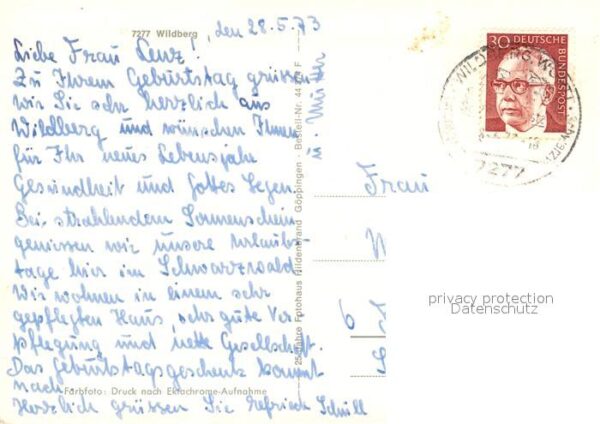 7277 Wildberg, den 28.5.73
Liebe Frau Lenz!
Zu Ihrem Geburtstag grüssen
wir Sie sehr herzlich aus
Wildberg und wünschen Ihnen
für Ihr neues Lebensjahr
Gesundheit und Gottes Segen.
Bei strahlendem Sonnenschein
geniessen wir unsere Urlaubs-
tage hier im Schwarzwald
Wir wohnen in einem sehr
gepflegten Haus, sehr gute Ver
pflegung und nette Gesellschaft.
Das Geburtstagsgeschenk kommt
nach
Farbfoto: Druck nach Ektachrome-Aufnahme
Herzlich grüssen Sie
u. Mutter
25 Jahre Fotohaus Hildenbrand Göppingen - Bestell-Nr. 44
30 DEUTSCHE
BUNDESPOST
WILDBERG
7277
Frau
6
privacy protection
Datenschutz